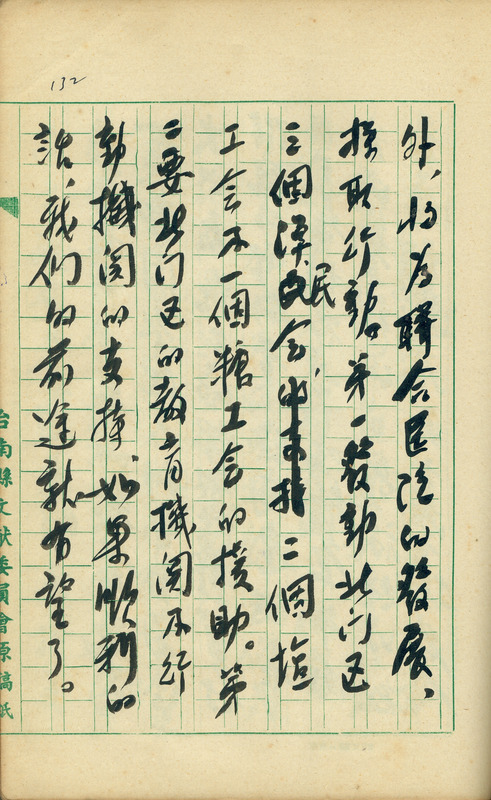 132
外，將为聯合医院的發展、
採取行動。第一發動北门区
三個漁民会，二個塩
工会及一個糖工会的援助。第
二要北门区的教育機関及行
動機関的支持，如果順利的
話，我们的前途就有望了。
台南縣文獻委員會原稿紙